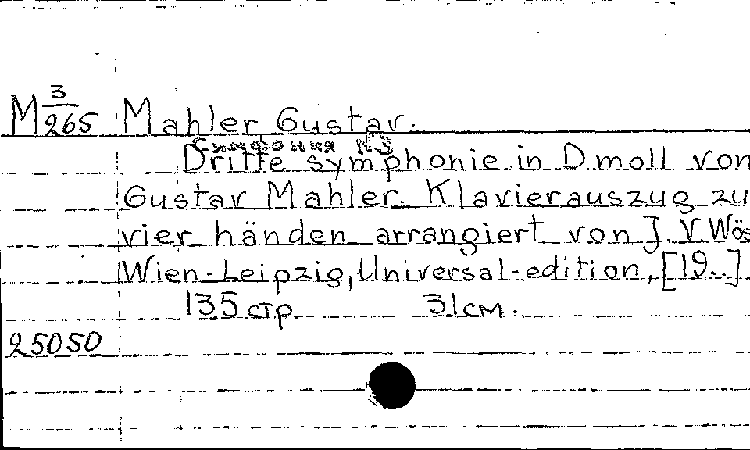 M 3/265 Mahler Gustav.
Симфония №3
Dritte symphonie in D moll von
Gustav Mahler. Klavierauszug zu
vier händen arrangiert von J. V. Wös
Wien-Leipzig, Universal-edition, [19..]
135 стр. 31 см.
25050